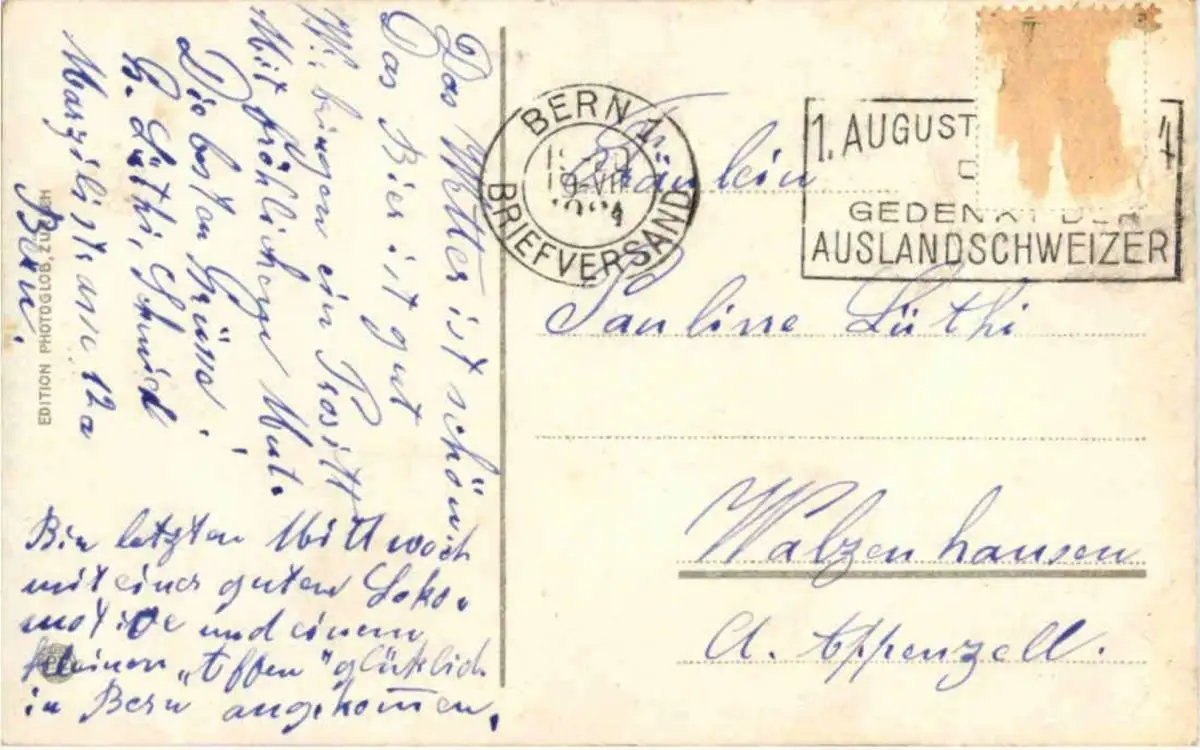 Das Wetter ist schön
Das Bier ist gut
Wir bringen ein Prositt
Mit fröhlichem Mut.
Die besten Grüsse!
G. Lüthi, Schmied
Marzilistrasse 12a
Bern.
Bin letzten Mittwoch
mit einer guten Loko-
motive und einem
kleinen „Affen" glücklich
in Bern angekommen.
EDITION PHOTOGLOB, ZÜRICH
BERN 1
BRIEFVERSAND
1. AUGUST
GEDENKT DER
AUSLANDSCHWEIZER
Fräulein
Pauline Lüthi
Walzenhausen
A. Appenzell.